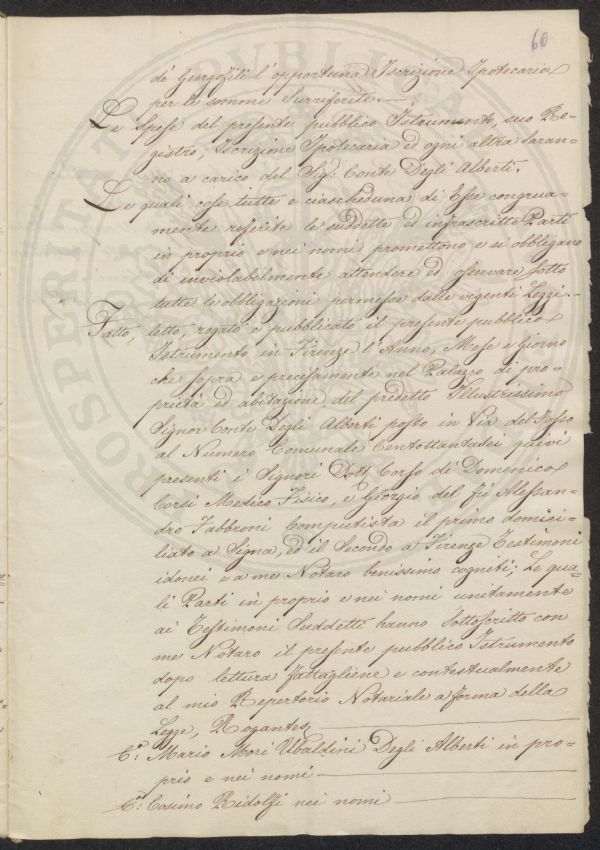 60
de' Georgofili l'opportuna Iscrizione Ipotecaria
per le somme Surriferite.
Le Spese del presente pubblico Istrumento, suo Re-
gistro, Iscrizione Ipotecaria ed ogni altra Saran-
no a carico del Sig: Conte Degli Alberti.
Le quali cose tutte e ciascheduna di Esse congrua-
mente referite le suddette ed infrascritte Parti
in proprio e nei nomi promettono, e si obbligano
di inviolabilmente attendere ed osservare sotto
tutte le obbligazioni permesse dalle vigenti Leggi.
Fatto, letto, rogato e pubblicato il presente pubblico
Istrumento in Firenze l'Anno, Mese e Giorno
che sopra e precisamente nel Palazzo di pro-
prietà ed abitazione del predetto Illustrissimo
Signor Conte Degli Alberti posto in Via del Fosso
al Numero Comunale Centottantasei quivi
presenti i Signori Dott. Corso di Domenico
Corsi Medico Fisico, e Giorgio del fù Alessan-
dro Fabbroni Computista il primo domici-
liato a Signa, ed il Secondo a Firenze Testimoni
idonei e a me Notaro benissimo cogniti; Le qua-
li Parti in proprio e nei nomi unitamente
ai Testimoni Suddetti hanno Sottoscritto con
me Notaro il presente pubblico Istrumento
dopo lettura fattagliene e contestualmente
al mio Repertorio Notariale a forma della
Legge, Rogantes
C.º Mario Mori Ubaldini Degli Alberti in pro-
prio e nei nomi
C.º Cosimo Ridolfi nei nomi
PROSPERITATI PUBLICAE